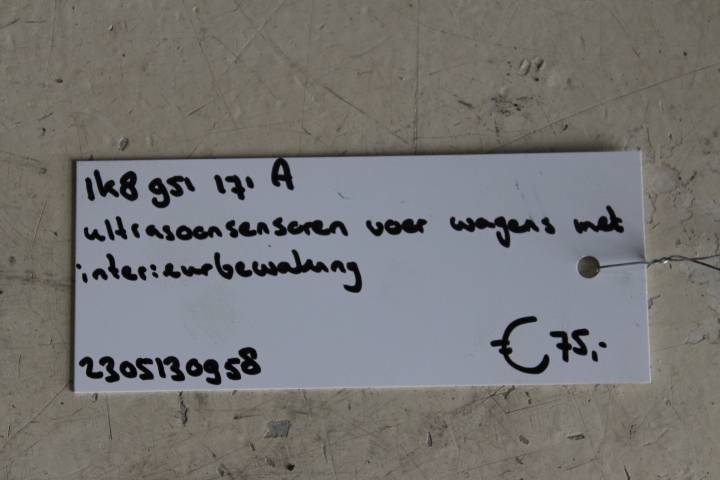 1K8 951 171 A
ultrasoonsensoren voor wagens met
interieurbewaking
2305130958 €75,-